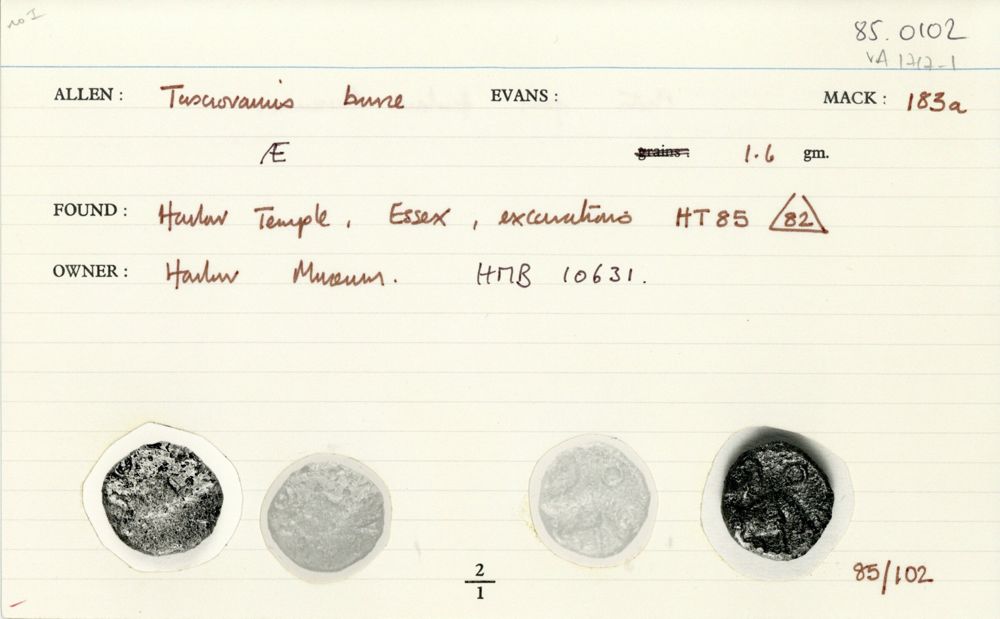 no I
85.0102
VA 1717-1
ALLEN : Tasciovanus bronze EVANS : MACK : 183a
Æ grains : 1.6 gm.
FOUND : Harlow Temple, Essex, excavations HT85 82
OWNER : Harlow Museum. HMB 10631.
2
1
85/102